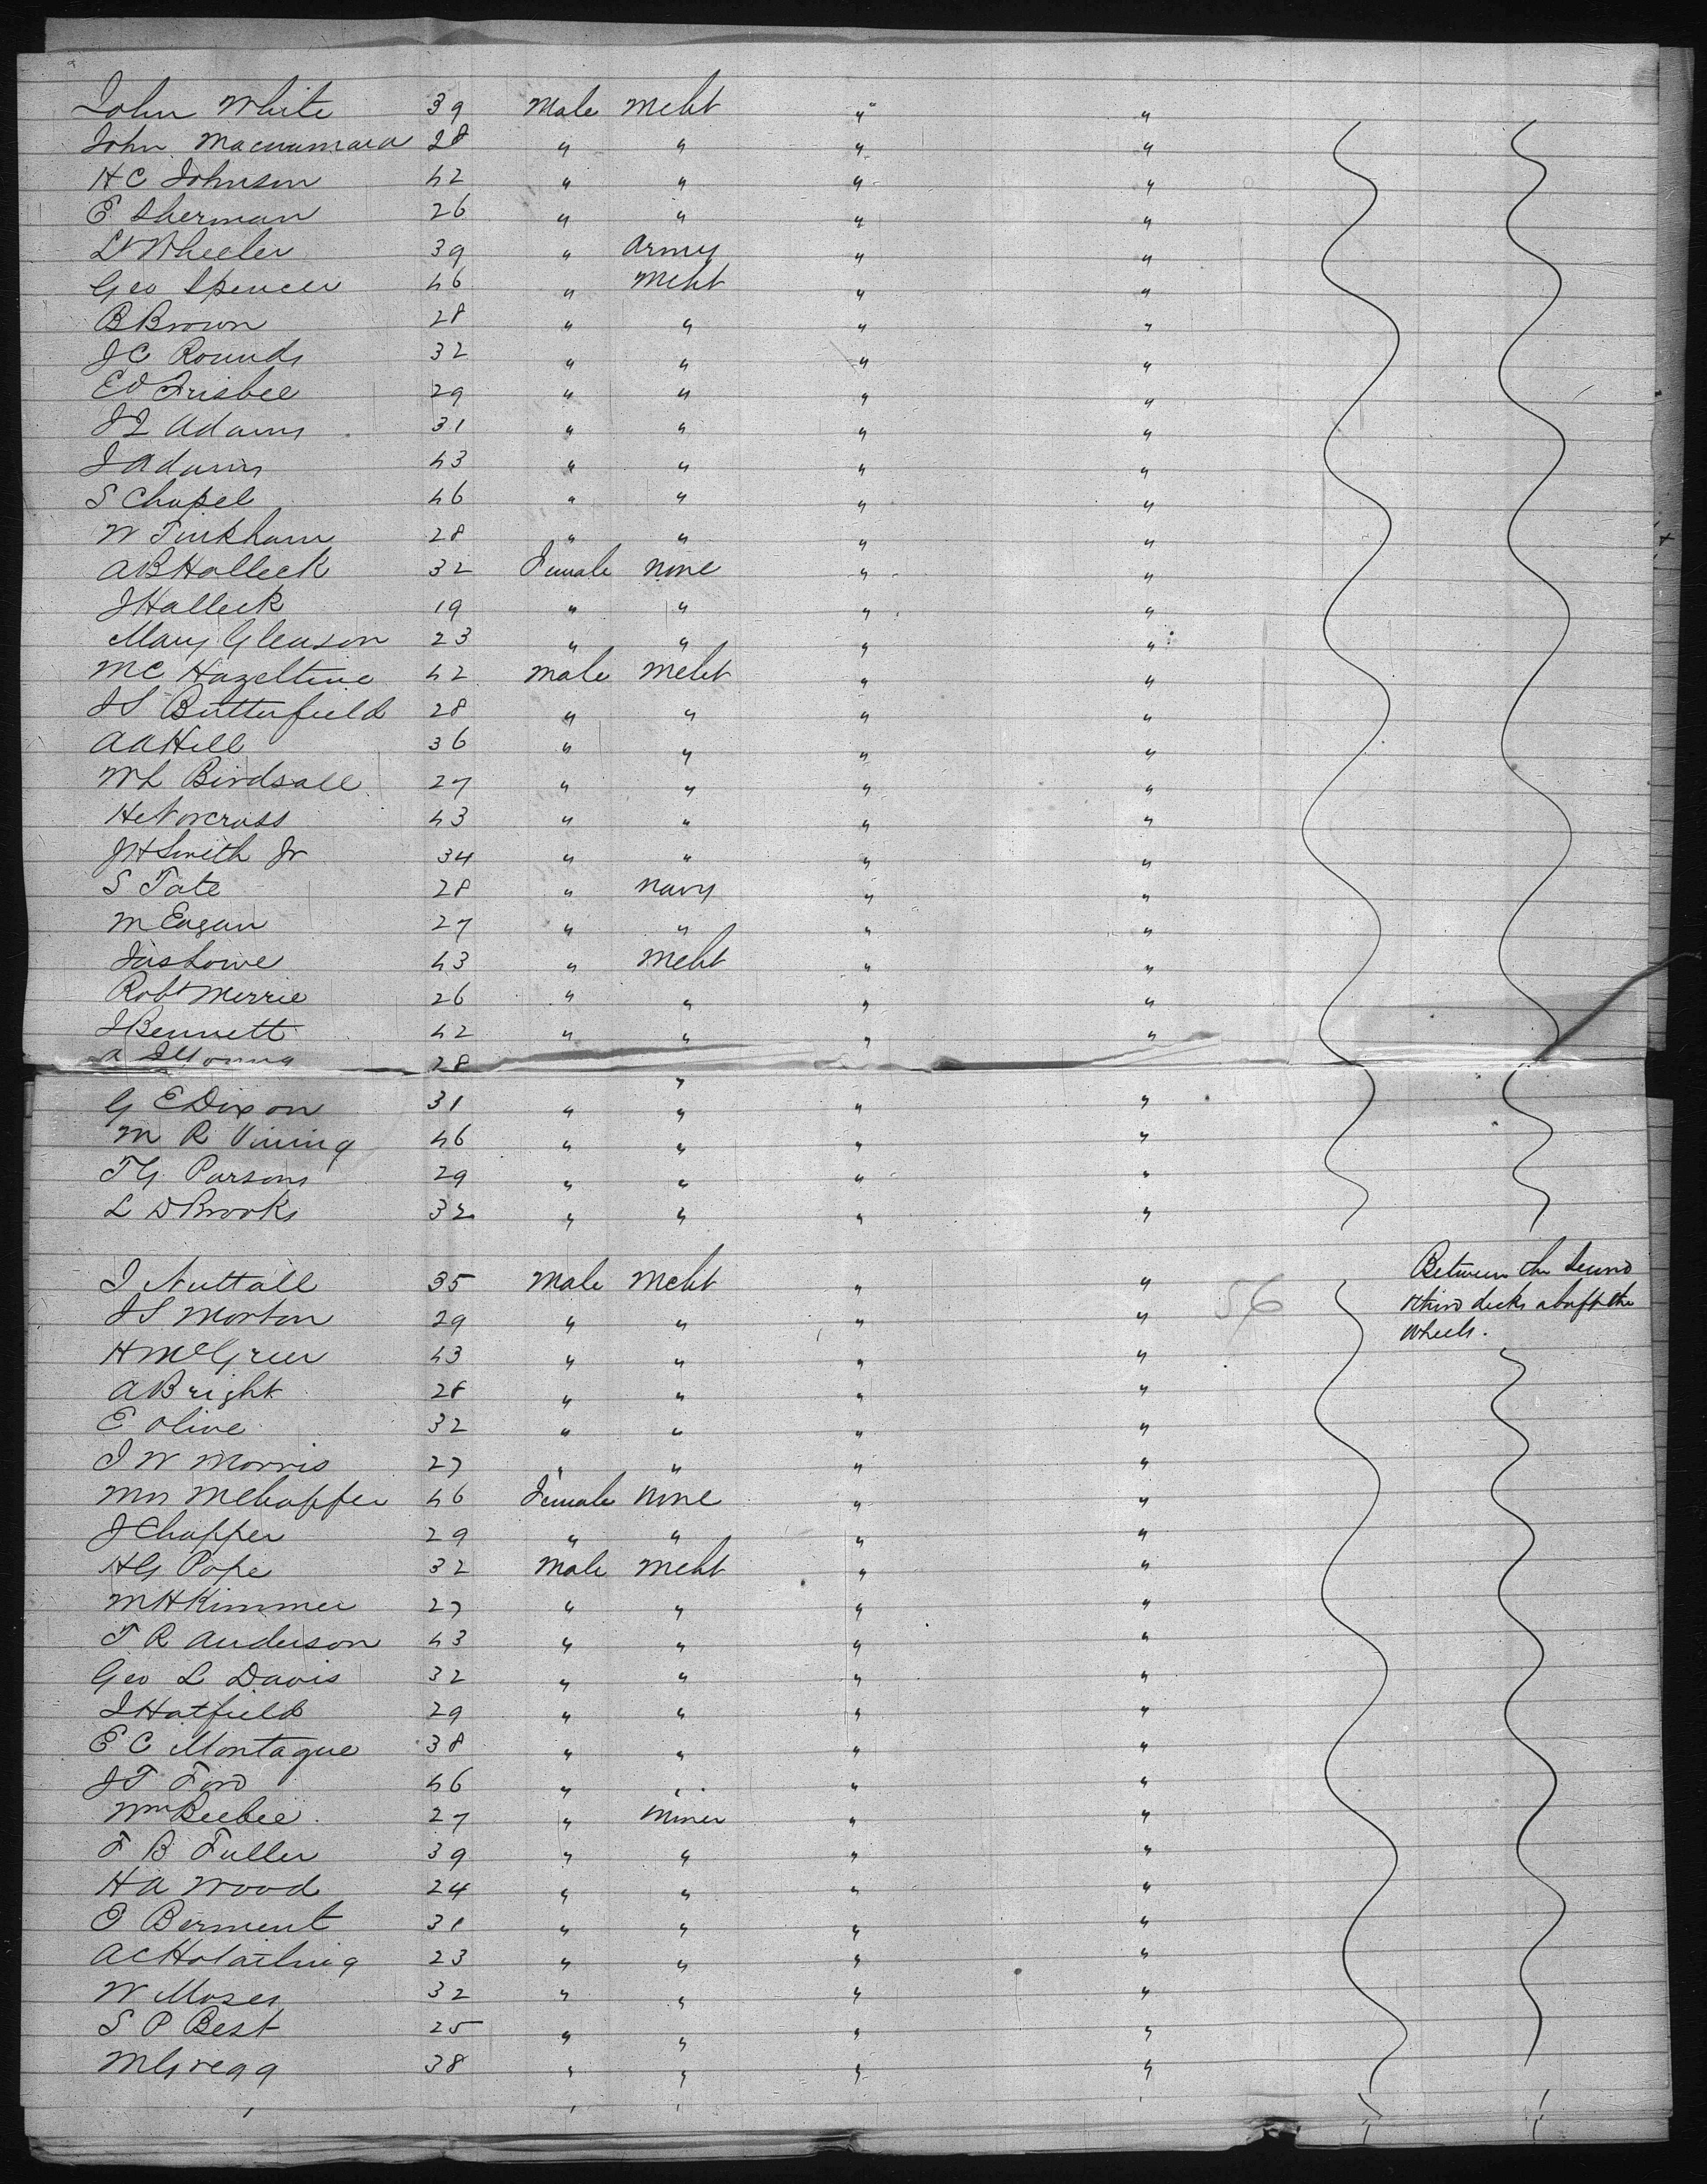 John White 39 Male Mcht " "
John Macnumara 28 " " " "
H C Johnson 42 " " " "
E Sherman 26 " " " "
Lt Wheeler 39 " Army " "
Geo Spencer 46 " Mcht " "
B Brown 28 " " " "
J C Rounds 32 " " " "
Ed Frisbee 29 " " " "
J L Adams 31 " " " "
J Adams 43 " " " "
S Chapel 46 " " " "
W Tinkham 28 " " " "
A B Halleck 32 Female None " "
J Halleck 19 " " " "
Mary Gleason 23 " " " "
M C Hazeltine 42 Male Mcht " "
J S Butterfield 28 " " " "
A A Hill 36 " " " "
W L Birdsall 27 " " " "
H Norcross 43 " " " "
J H Smith Jr 34 " " " "
S Tate 28 " Navy " "
M Eagan 27 " " " "
Jas Lowe 43 " Mcht " "
Robt Merrie 26 " " " "
J Bennett 42 " " " "
A J Young 28 "
G E Dixon 31 " " " "
M R Vining 46 " " " "
T G Parsons 29 " " " "
L D Brooks 32 " " " "
J Nuttall 35 Male Mcht " " Between the second
J S Morton 29 " " " " 56 & third decks abaft the
H McGreer 43 " " " " wheels.
A Bright 28 " " " "
E Olive 32 " " " "
J W Morris 27 " " " "
Mrs McChapper 46 Female None " "
J Chapper 29 " " " "
H G Pope 32 Male Mcht " "
M H Kimmer 27 " " " "
T R Anderson 43 " " " "
Geo L Davis 32 " " " "
J Hatfield 29 " " " "
E C Montague 38 " " " "
J T Ford 46 " " " "
Wm Beebee 27 " Miner " "
F B Fuller 39 " " " "
H A Wood 24 " " " "
O Berment 31 " " " "
A C Hotailing 23 " " " "
W Moses 32 " " " "
S P Best 25 " " " "
M Gregg 38 " " " "